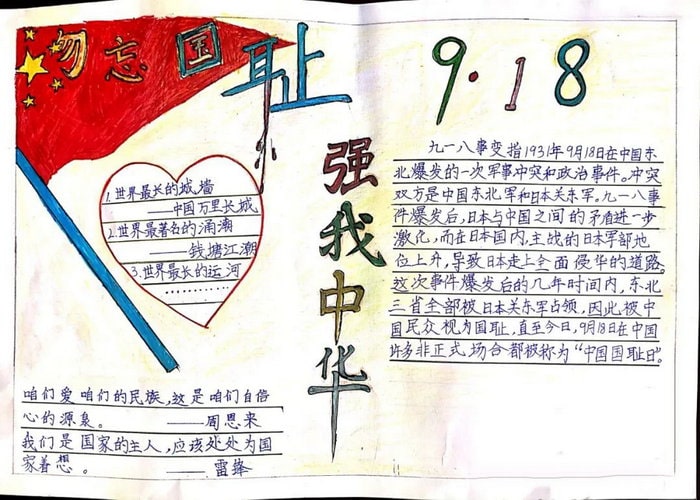 勿忘国耻
强我中华
9·18
1.世界最长的城墙
——中国万里长城
2.世界最著名的涌潮
——钱塘江潮
3.世界最长的运河
…………
咱们爱咱们的民族,这是咱们自信
心的源泉。 ——周恩来
我们是国家的主人,应该处处为国
家着想。 ——雷锋
九一八事变指1931年9月18日在中国东
北爆发的一次军事冲突和政治事件。冲突
双方是中国东北军和日本关东军。九一八事
件爆发后,日本与中国之间的矛盾进一步
激化,而在日本国内,主战的日本军部地
位上升,导致日本走上全面侵华的道路。
这次事件爆发后的几年时间内,东北
三省全部被日本关东军占领,因此被中
国民众视为国耻,直至今日,9月18日在中国
许多非正式场合都被称为“中国国耻日”。